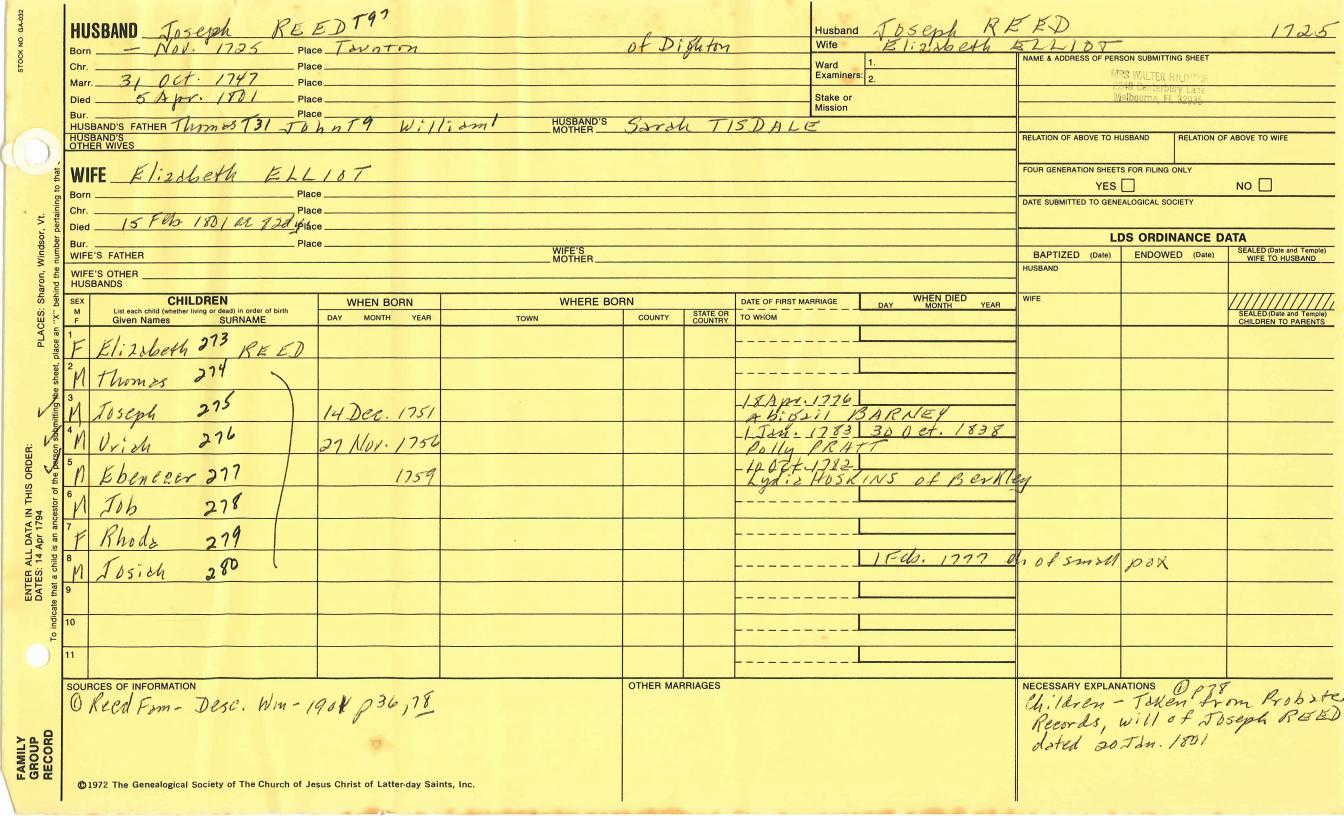 STOCK NO. GA-032
HUSBAND Joseph REED T97
Born — Nov. 1725 Place Taunton of Dighton
Chr. Place
Marr. 31 Oct. 1747 Place
Died 5 Apr. 1801 Place
Bur. Place
HUSBAND'S FATHER Thomas T31 John T9 William1 HUSBAND'S MOTHER Sarah TISDALE
HUSBAND'S OTHER WIVES
Husband Joseph REED 1725
Wife Elizabeth ELLIOT
Ward Examiners: 1. 2.
Stake or Mission
NAME & ADDRESS OF PERSON SUBMITTING SHEET
MRS WALTER
Canterbury Lane
Melbourne, FL
RELATION OF ABOVE TO HUSBAND RELATION OF ABOVE TO WIFE
FOUR GENERATION SHEETS FOR FILING ONLY
YES NO
DATE SUBMITTED TO GENEALOGICAL SOCIETY
WIFE Elizabeth ELLIOT
Born Place
Chr. Place
Died 15 Feb 1801 ae 82 Place
Bur. Place
WIFE'S FATHER WIFE'S MOTHER
WIFE'S OTHER HUSBANDS
LDS ORDINANCE DATA
BAPTIZED (Date) ENDOWED (Date) SEALED (Date and Temple) WIFE TO HUSBAND
HUSBAND
WIFE
SEALED (Date and Temple) CHILDREN TO PARENTS
SEX M F CHILDREN WHEN BORN WHERE BORN DATE OF FIRST MARRIAGE WHEN DIED
List each child (whether living or dead) in order of birth
Given Names SURNAME DAY MONTH YEAR TOWN COUNTY STATE OR COUNTRY TO WHOM DAY MONTH YEAR
1 F Elizabeth 273 REED
2 M Thomas 274
3 M Joseph 275 14 Dec. 1751 18 Apr. 1776
Abigail BARNEY
4 M Uriah 276 27 Nov. 1756 1 Jan. 1783 30 Oct. 1838
Polly PRATT
5 M Ebenezer 277 1759 10 Oct. 1782
Lydia HOSKINS of Berkley
6 M Job 278
7 F Rhoda 279
8 M Josiah 280 1 Feb. 1777 of small pox
9
10
11
SOURCES OF INFORMATION
① Reed Fam- Desc. Wm- 1901 p36,78
OTHER MARRIAGES
NECESSARY EXPLANATIONS ① p78
Children - Taken from Probate
Records, will of Joseph REED
dated 20 Jan. 1801
©1972 The Genealogical Society of The Church of Jesus Christ of Latter-day Saints, Inc.
FAMILY GROUP RECORD
ENTER ALL DATA IN THIS ORDER:
DATES: 14 Apr 1794 PLACES: Sharon, Windsor, Vt.
To indicate that a child is an ancestor of the person submitting the sheet, place an "X" behind the number pertaining to that